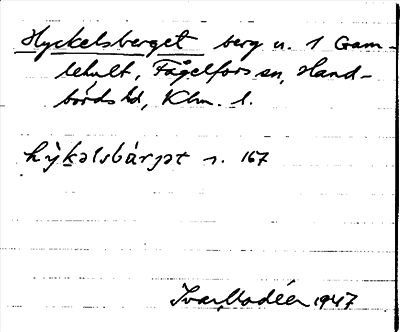 Hyckelsberget berg u. 1 Gam-
lehult, Fågelfors sn, Hand-
börds hd, Klm. l.
hỳkəlsbárjət s. 167
Ivar Modéer 1947